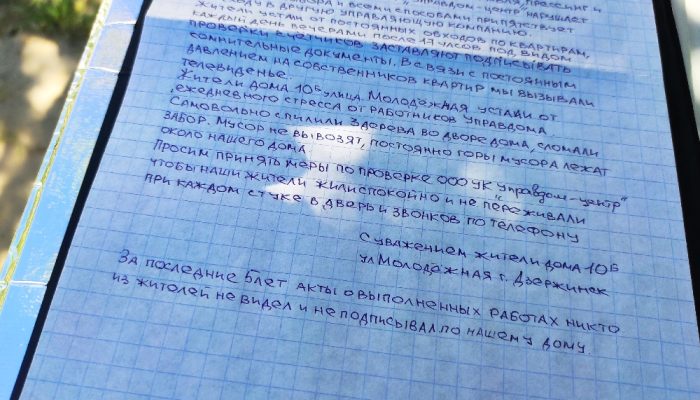 прессинг и
"Управдом-центр" нарушает
и всеми способами припятствует
в другую управляющую компанию.
Жители устали от постоянных обходов по квартирам,
каждый день вечерами после 19 часов под видом
проверки счетчиков заставляют подписывать
сомнительные документы. В связи с постоянным
давлением на собственников квартир мы вызывали
телевиденье.
Жители дома 10Б улица Молодежная устали от
ежедневного стресса от работников управдома
Самовольно спилили 3 дерева во дворе дома, сломали
забор. Мусор не вывозят, постоянно горы мусора лежат
около нашего дома
Просим принять меры по проверке ООО УК "Управдом-центр"
чтобы наши жители жили спокойно и не переживали
при каждом стуке в дверь и звонков по телефону
С уважением жители дома 10Б
ул Молодожная г. Дзержинск
За последние 5 лет акты о выполненных работах никто
из жителей не видел и не подписывал по нашему дому.